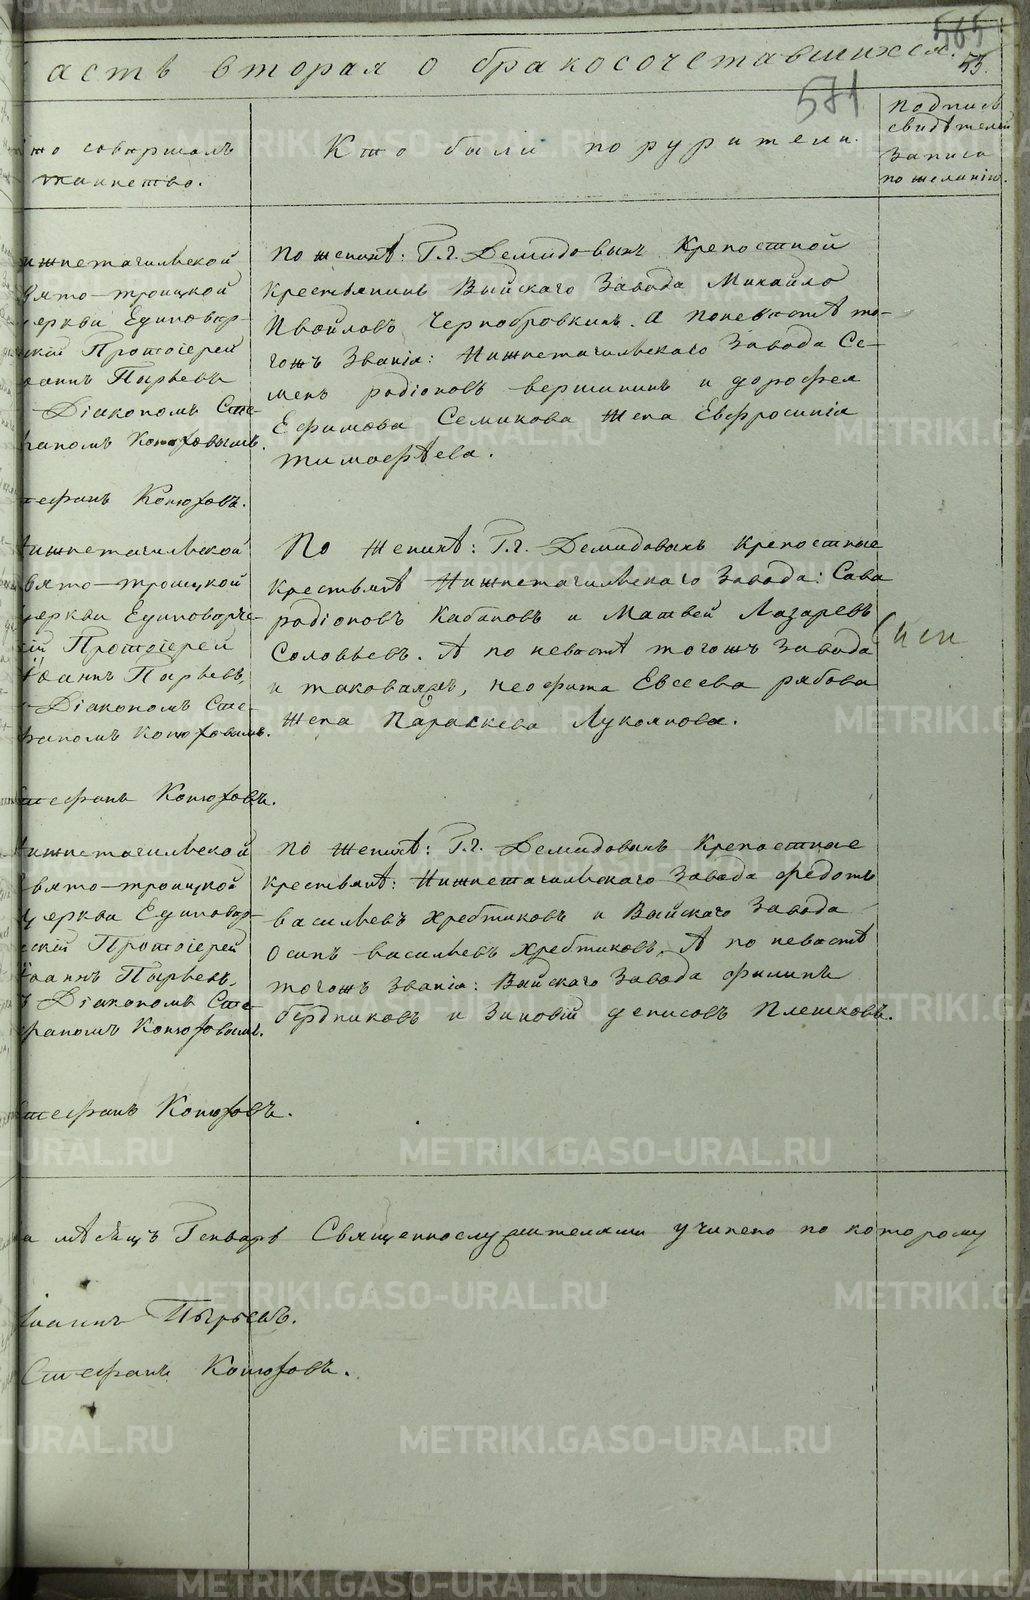 565
асть вторая о бракосочетавшихся.
55.
571
то совершалъ
таинство.
Кто были поручители.
подпись
свидѣтелей
записи
по желанію.
ижнетагильской
вято-троицкой
церкви Единовѣр-
скій Протоіерей
оаннъ Пырьевъ
Діакономъ Сте-
фаномъ Конюховымъ.
тефанъ Конюховъ.
По женихѣ: Г.г. Демидовыхъ Крепостной
крестьянинъ Выйскаго Завода Михайло
Ивойловъ Чернобровкинъ. А поневѣстѣ то-
гожъ Званія: Нижнетагильскаго Завода Се-
менъ родіоновъ вершининъ и дорофея
Ефимова Семинова жена Евфросинія
тимофѣева.
Нижнетагильской
вято-троицкой
церкви Единоверче-
кій Протоіерей
Іоаннъ Пырьевъ,
Діакономъ Сте-
фаномъ Конюховымъ.
Стефанъ Конюховъ.
По женихѣ: Г.г. Демидовыхъ крепостные
крестьянѣ Нижнетагильскаго Завода: Сава
родіоновъ Кабановъ и Матвей Лазаревъ
Соловьевъ. А по невѣстѣ тогожъ завода
и таковаяжъ, неофита Евсеева рябова
жена Параскева Лукоянова.
Нижнетагильской
Свято-троицкой
церкви Единовѣр-
ескій Протоіерей
Іоаннъ Пырьевъ,
ъ Діакономъ Сте-
фаномъ Конюховымъ.
Стефанъ Конюховъ.
по женихѣ: Г.г. Демидовыхъ Крепостные
крестьянѣ: Нижнетагильскаго Завода федотъ
васильевъ хребтиковъ и Выйскаго Завода
Осипъ васильевъ хребтиковъ. А по невѣстѣ
тогожъ званія: Выйскаго Завода филипъ
бердниковъ и Зиновій денисовъ Плешковъ.
а мѣсяцъ Генварь Священнослужителями учинено по которому
Іоаннъ Пырьевъ.
Стефанъ Конюховъ.
METRIKI.GASO-URAL.RU